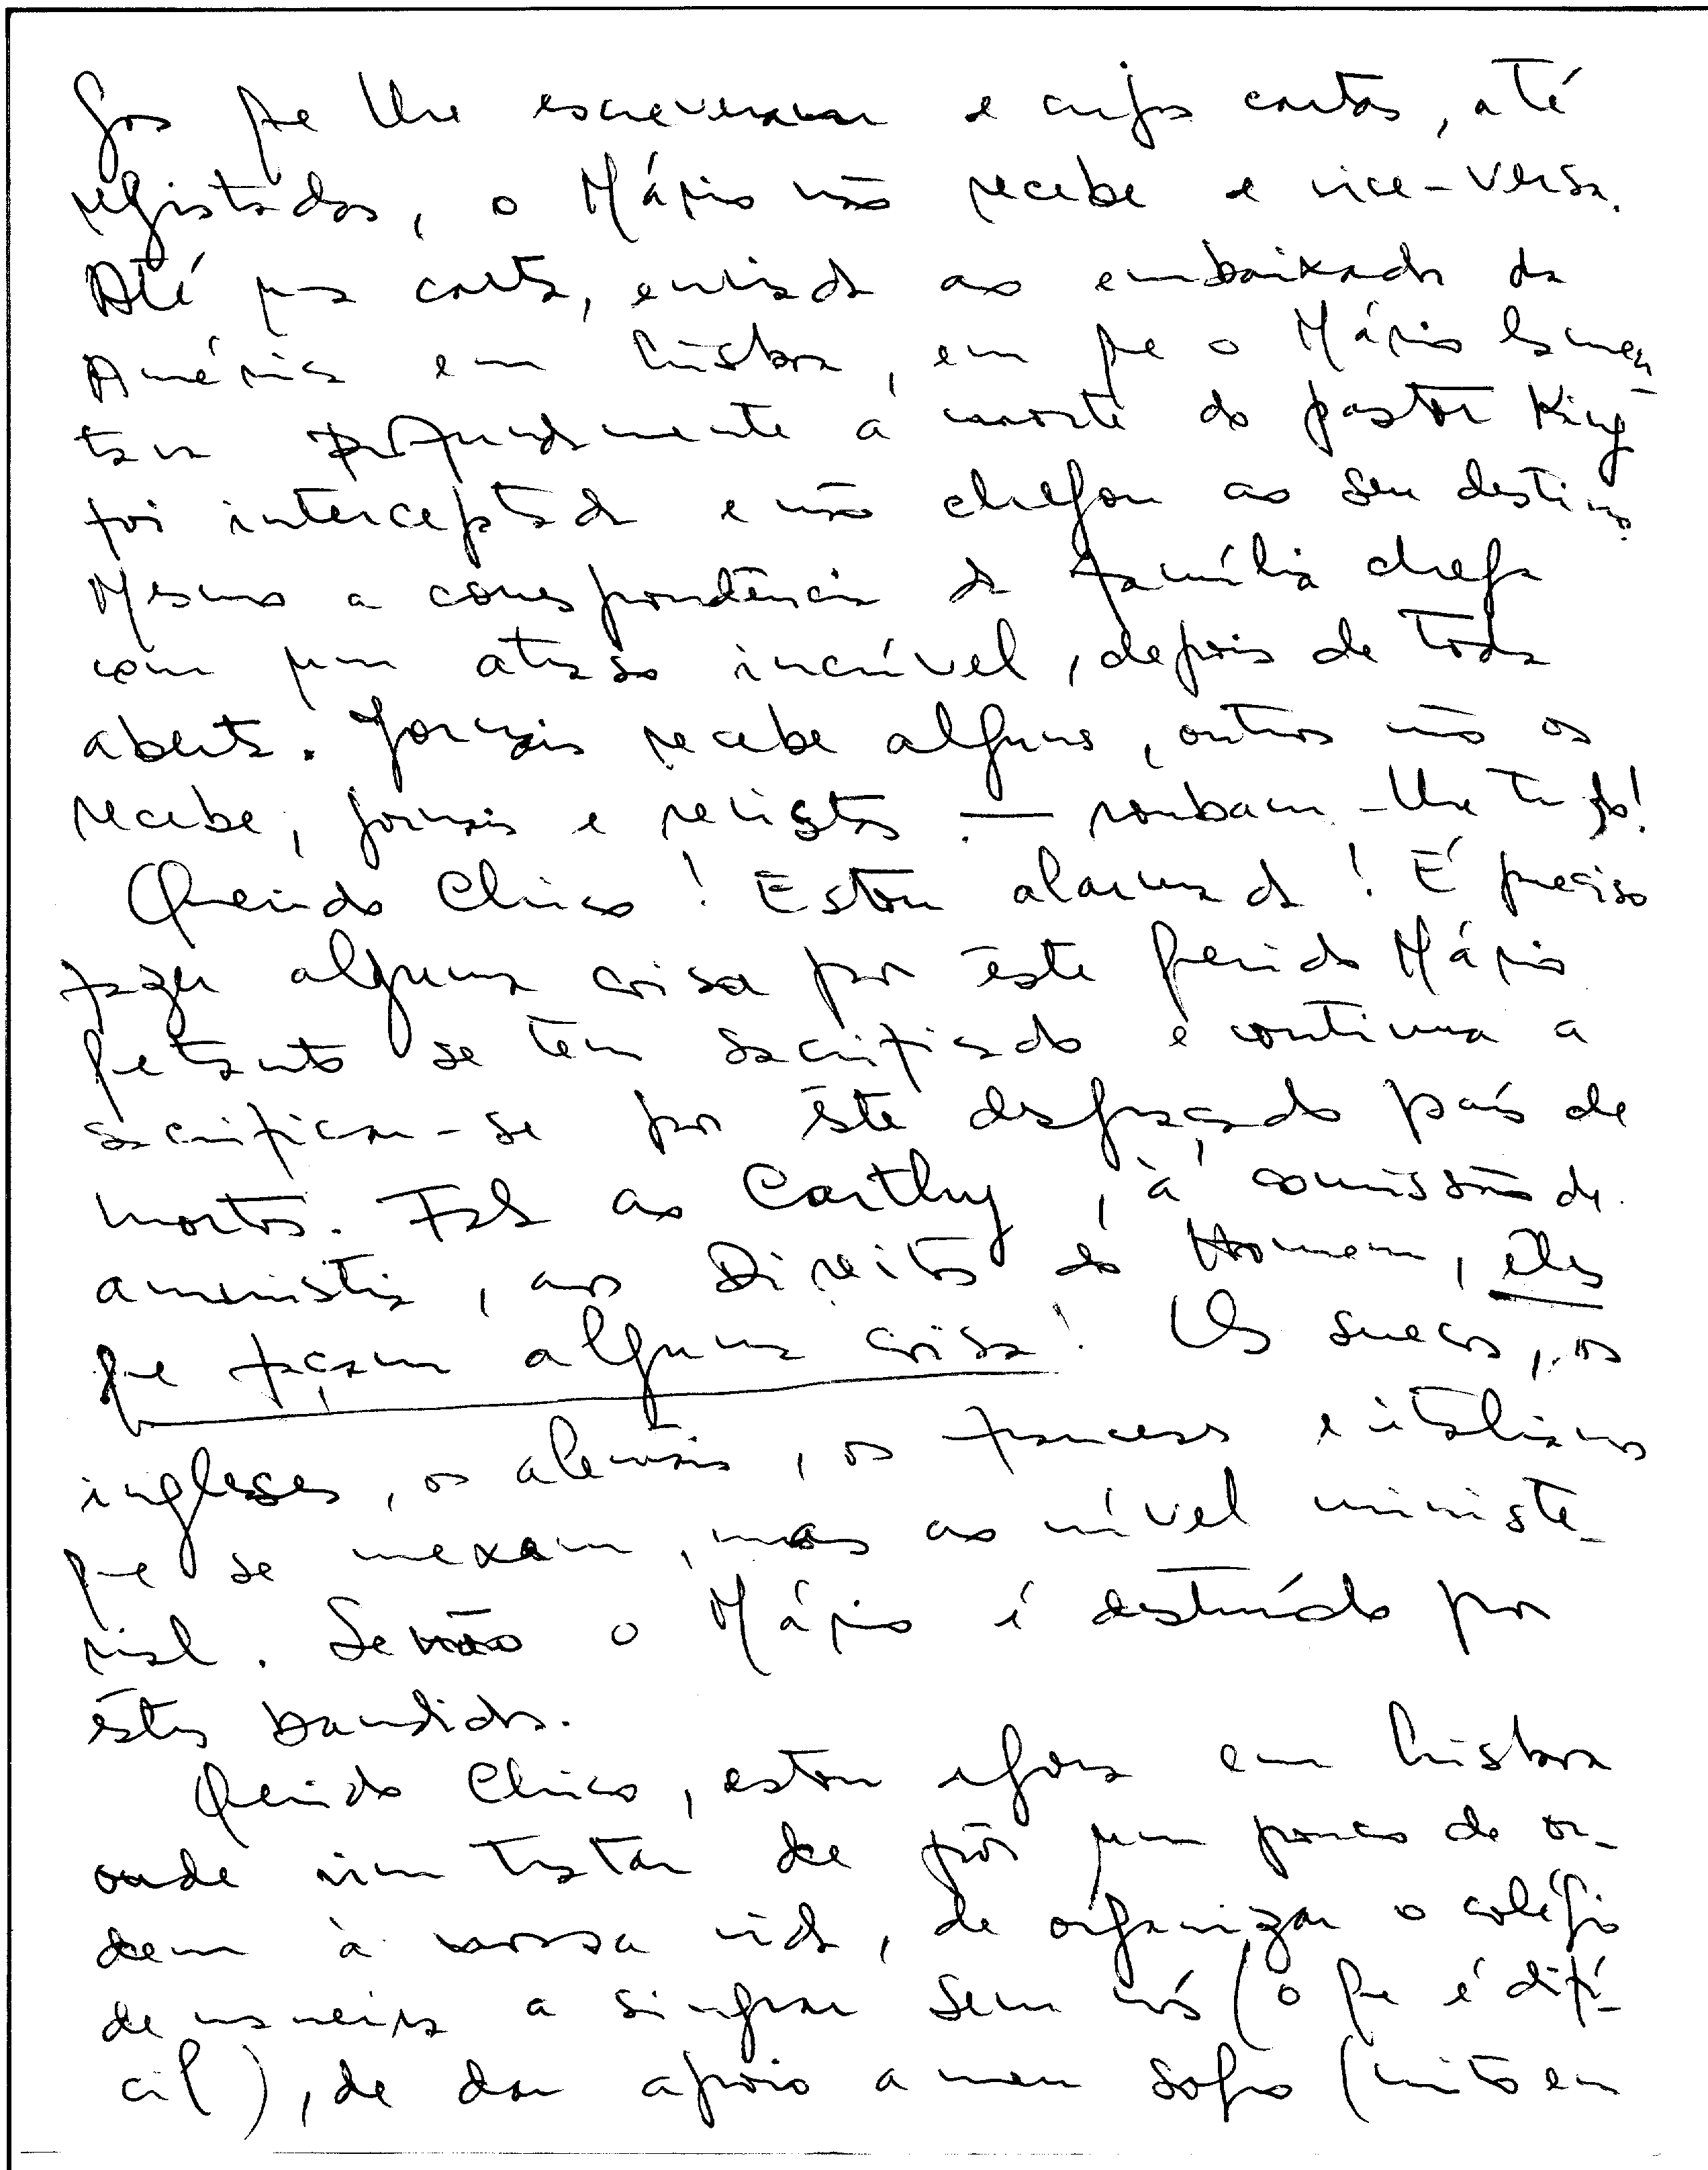 gos que lhe escreveram e cujas cartas, até
registadas, o Mário não recebe e vice-versa.
Até uma carta, enviada ao embaixador da
América em Lisboa, em que o Mário lamen-
tava profundamente a morte do pastor King
foi interceptada e não chegou ao seu destino.
Mesmo a correspondência da família chega
com um atraso incrível, depois de toda
aberta. Jornais recebe alguns, outros não os
recebe, jornais e revistas — roubam-lhe tudo!
Querido Chico! Estou alarmada! É preciso
fazer alguma coisa por êste querido Mário
que tanto se tem sacrificado e continua a
sacrificar-se por êste desgraçado país de
mortos. Fala ao Carthy, à comissão de
amenistia, aos Direitos do Homem, eles
que façam alguma coisa! Os suecos, os
ingleses, os alemães, os franceses e italianos
que se mexam, mas ao nível ministe-
rial. Senão o Mário é destruído por
êstes bandidos.
Querido Chico, estou agora em Lisboa
onde vim tratar de pôr um pouco de or-
dem à nossa vida, de organizar o colégio
de maneira a singrar sem nós (o que é difí-
cil), de dar apoio a meu sogro (muito em